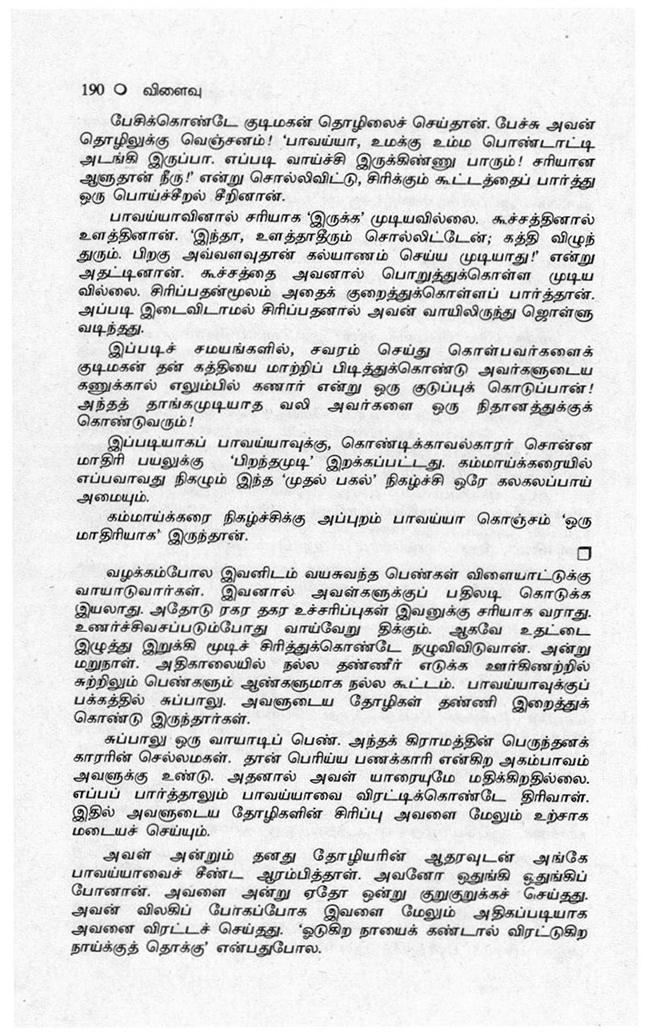 190 O விளைவு
பேசிக்கொண்டே குடிமகன் தொழிலைச் செய்தான். பேச்சு அவன்
தொழிலுக்கு வெஞ்சனம்! ‘பாவய்யா, உமக்கு உம்ம பொண்டாட்டி
அடங்கி இருப்பா. எப்படி வாய்ச்சி இருக்கிண்ணு பாரும்! சரியான
ஆளுதான் நீரு!’ என்று சொல்லிவிட்டு, சிரிக்கும் கூட்டத்தைப் பார்த்து
ஒரு பொய்ச்சீறல் சீறினான்.
பாவய்யாவினால் சரியாக ‘இருக்க’ முடியவில்லை. கூச்சத்தினால்
உளத்தினான். ‘இந்தா, உளத்தாதீரும் சொல்லிட்டேன்; கத்தி விழுந்
துரும். பிறகு அவ்வளவுதான் கல்யாணம் செய்ய முடியாது!’ என்று
அதட்டினான். கூச்சத்தை அவனால் பொறுத்துக்கொள்ள முடிய
வில்லை. சிரிப்பதன்மூலம் அதைக் குறைத்துக்கொள்ளப் பார்த்தான்.
அப்படி இடைவிடாமல் சிரிப்பதனால் அவன் வாயிலிருந்து ஜொள்ளு
வடிந்தது.
இப்படிச் சமயங்களில், சவரம் செய்து கொள்பவர்களைக்
குடிமகன் தன் கத்தியை மாற்றிப் பிடித்துக்கொண்டு அவர்களுடைய
கணுக்கால் எலும்பில் கணார் என்று ஒரு குடுப்புக் கொடுப்பான்!
அந்தத் தாங்கமுடியாத வலி அவர்களை ஒரு நிதானத்துக்குக்
கொண்டுவரும்!
இப்படியாகப் பாவய்யாவுக்கு, கொண்டிக்காவல்காரர் சொன்ன
மாதிரி பயலுக்கு ‘பிறந்தமுடி’ இறக்கப்பட்டது. கம்மாய்க்கரையில்
எப்பவாவது நிகழும் இந்த ‘முதல் பகல்’ நிகழ்ச்சி ஒரே கலகலப்பாய்
அமையும்.
கம்மாய்க்கரை நிகழ்ச்சிக்கு அப்புறம் பாவய்யா கொஞ்சம் ‘ஒரு
மாதிரியாக’ இருந்தான்.
வழக்கம்போல இவனிடம் வயசுவந்த பெண்கள் விளையாட்டுக்கு
வாயாடுவார்கள். இவனால் அவள்களுக்குப் பதிலடி கொடுக்க
இயலாது. அதோடு ரகர தகர உச்சரிப்புகள் இவனுக்கு சரியாக வராது.
உணர்ச்சிவசப்படும்போது வாய்வேறு திக்கும். ஆகவே உதட்டை
இழுத்து இறுக்கி மூடிச் சிரித்துக்கொண்டே நழுவிவிடுவான். அன்று
மறுநாள். அதிகாலையில் நல்ல தண்ணீர் எடுக்க ஊர்கிணற்றில்
சுற்றிலும் பெண்களும் ஆண்களுமாக நல்ல கூட்டம். பாவய்யாவுக்குப்
பக்கத்தில் சுப்பாலு. அவளுடைய தோழிகள் தண்ணி இறைத்துக்
கொண்டு இருந்தார்கள்.
சுப்பாலு ஒரு வாயாடிப் பெண். அந்தக் கிராமத்தின் பெருந்தனக்
காரரின் செல்லமகள். தான் பெரிய்ய பணக்காரி என்கிற அகம்பாவம்
அவளுக்கு உண்டு. அதனால் அவள் யாரையுமே மதிக்கிறதில்லை.
எப்பப் பார்த்தாலும் பாவய்யாவை விரட்டிக்கொண்டே திரிவாள்.
இதில் அவளுடைய தோழிகளின் சிரிப்பு அவளை மேலும் உற்சாக
மடையச் செய்யும்.
அவள் அன்றும் தனது தோழியரின் ஆதரவுடன் அங்கே
பாவய்யாவைச் சீண்ட ஆரம்பித்தாள். அவனோ ஒதுங்கி ஒதுங்கிப்
போனான். அவளை அன்று ஏதோ ஒன்று குறுகுறுக்கச் செய்தது.
அவன் விலகிப் போகப்போக இவளை மேலும் அதிகப்படியாக
அவனை விரட்டச் செய்தது. ‘ஓடுகிற நாயைக் கண்டால் விரட்டுகிற
நாய்க்குத் தொக்கு’ என்பதுபோல.